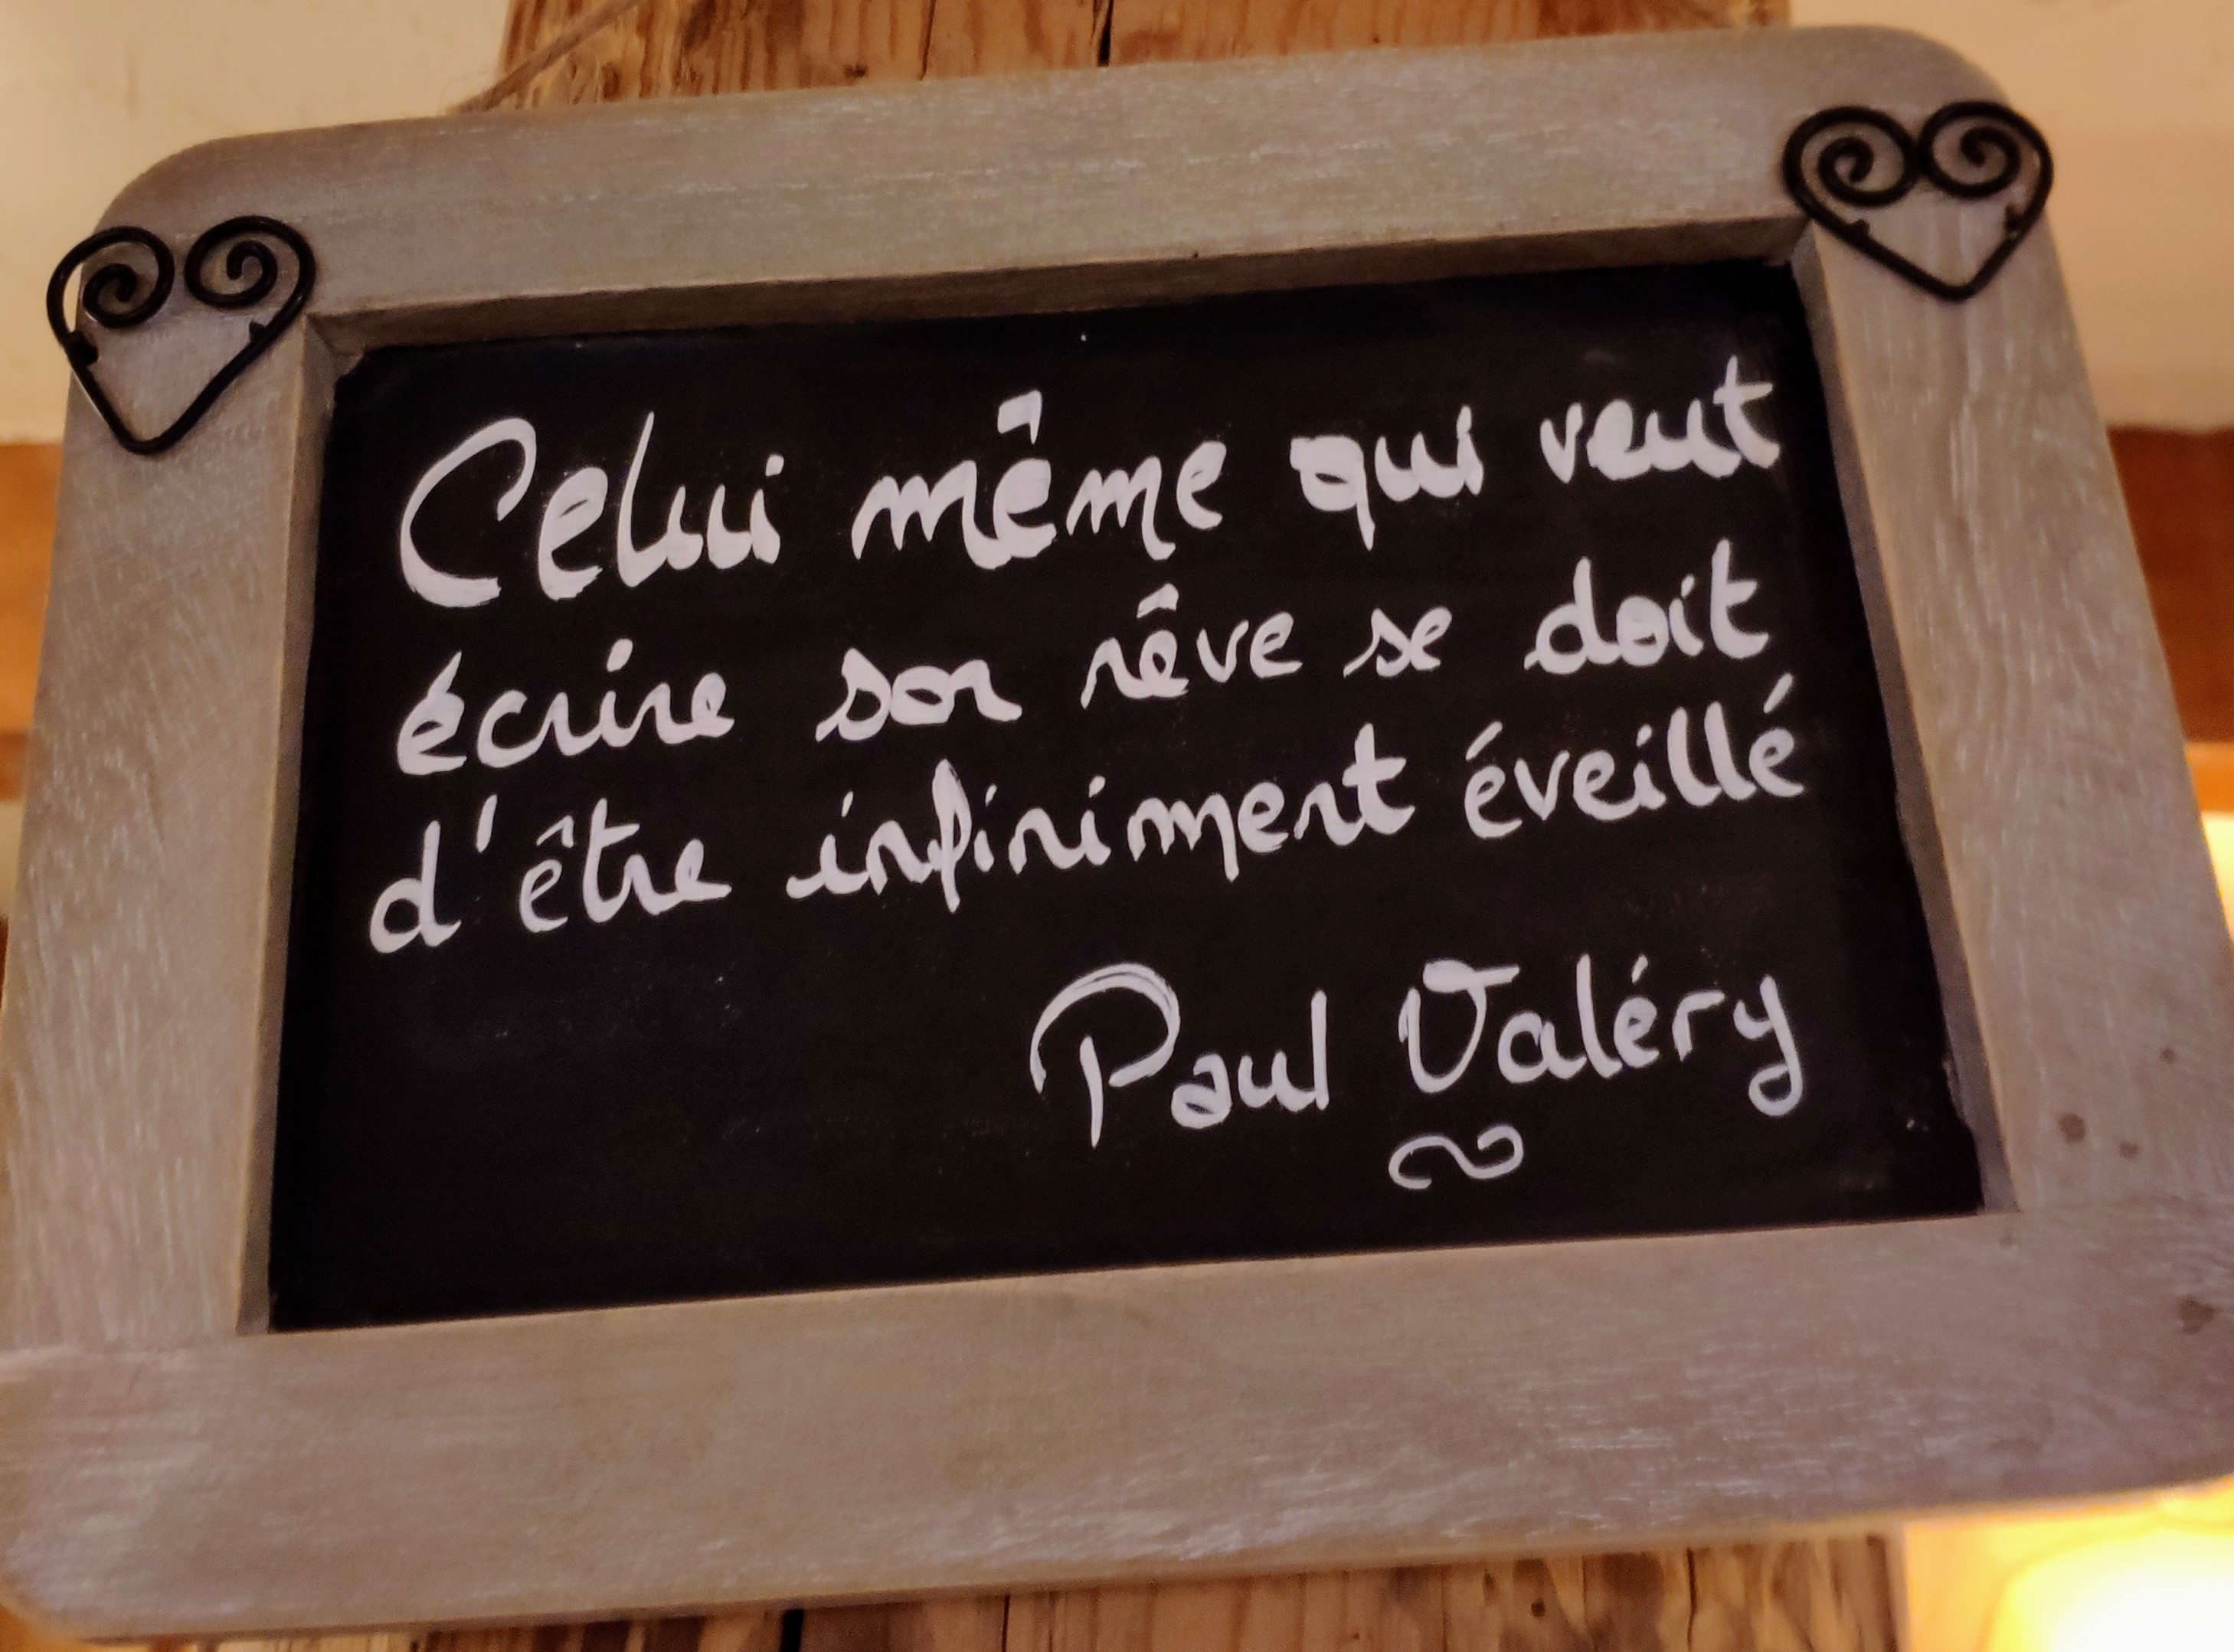 Celui même qui veut
écrire son rêve se doit
d'être infiniment éveillé
Paul Valéry